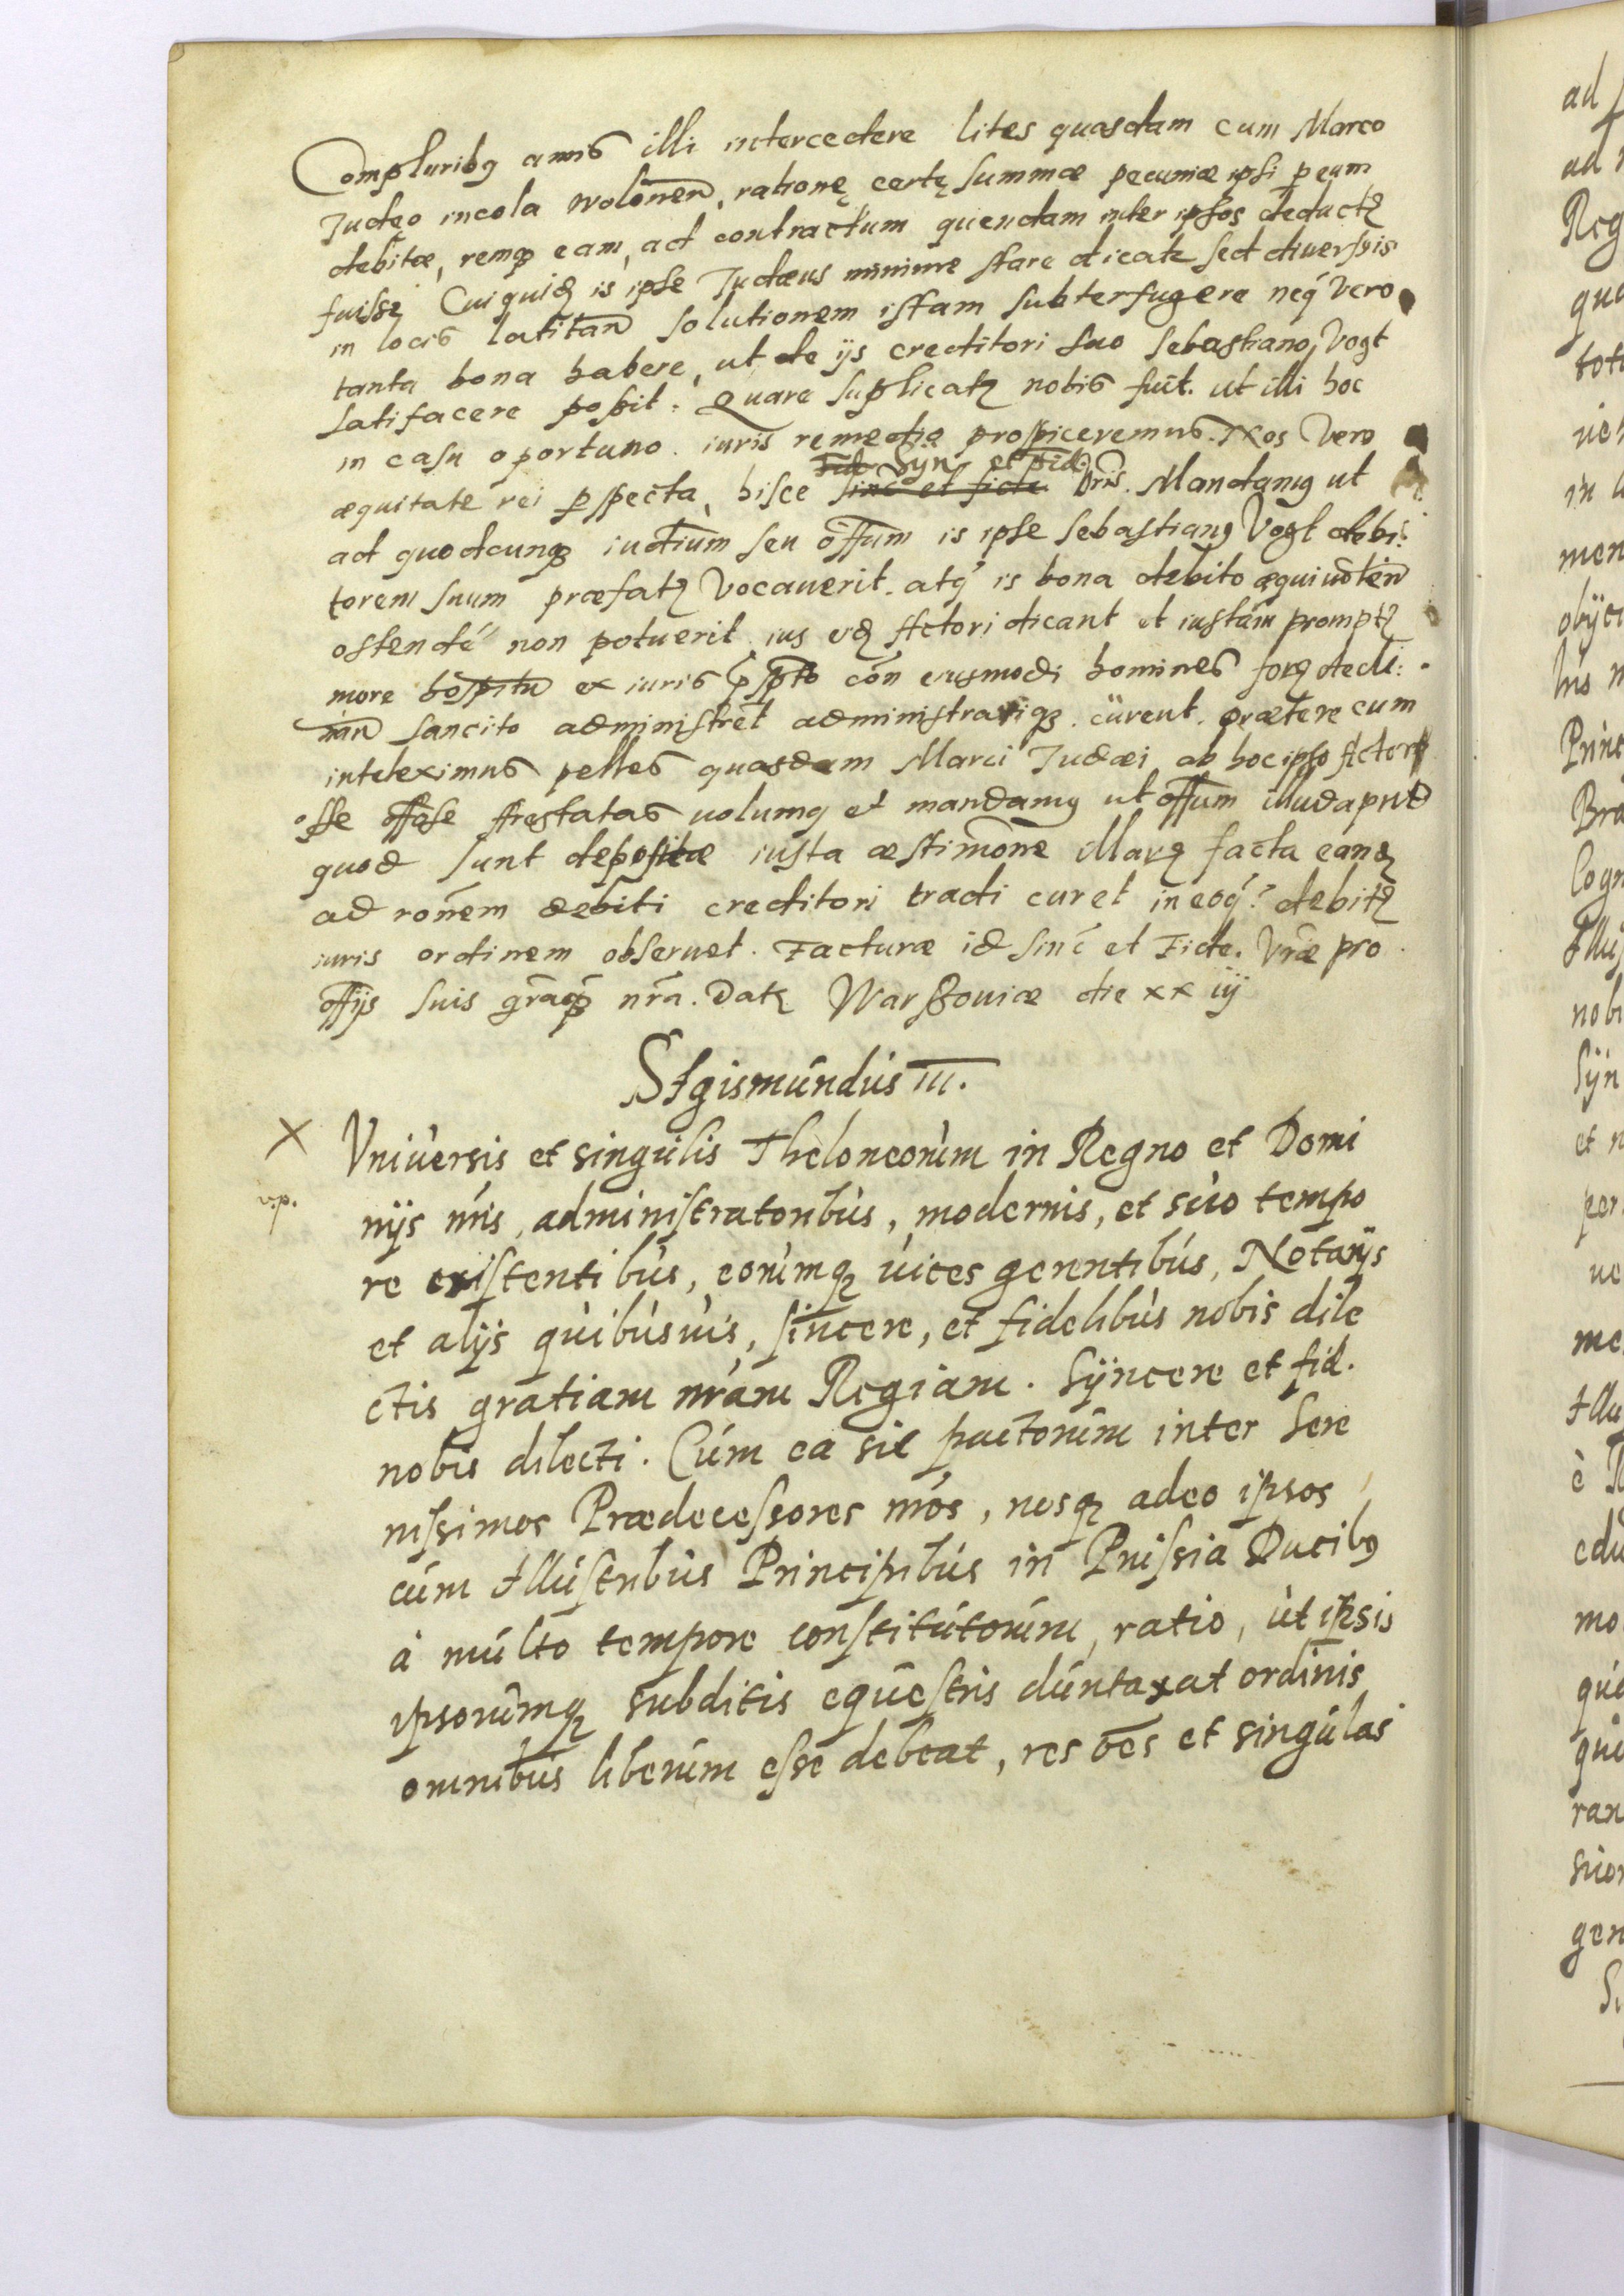 Compluribꝯ annis illi intercedere lites quasdam cum Marco
Judęo incola ratione certę summæ pecuniæ ipsi p eum
debitæ, remqꝫ eam, ad contractum quendam inter ipsos deductꝫ
fuisse, Cui quidē is ipse Judæus minime stare dicatꝫ sed diversis
in locis latitañ solutionem istam subterfugere neq vero
tanta bona habere, ut de ijs creditori suo Sebastiano Vogt
satisfacere possit. Quare suplicatꝫ nobis fuit. ut illi hoc
in casu oportuno. iuris remedio prospiceremus. Nos vero
æquitate rei pspecta, hisce sinc et fide Syn et fid. Vris. Mandamꝯ ut
ad quodcunqꝫ iudium seu offum is ipse Sebastianꝯ Vogt debi:
torem suum præfatꝫ vocaverit. atq is bona debito æquivaleñ
ostendé non potuerit. ius Actori dicant et iustam promptꝫ
more ex iuris con eiusmodi homines
sancito administret administrariqꝫ curent. præterea cum
inteleximus pelles quasdam Marci Judæi ab hoc ipso Actore
esse Arestatas volumꝯ et mandamꝯ ut offum illud apud
quod sunt depositæ iusta æstimone illarꝫ facta easqꝫ
ad ronem debiti creditori tradi curet in eoq debitꝫ
iuris ordinem observet. Facturæ id sinc et Fide. Vræ pro
offijs suis graqꝫ nra. Datꝫ Warssoviæ die xx iij
SIgismundus III.
X Universis et singulis Theloneorum in Regno et Domi
v.p. nijs nris, administratoribus, modernis, et suo tempo
re existentibus, eorumqꝫ vices gerentibus, Notarijs
et alijs quibusvis, sincere, et fidelibus nobis dile
ctis gratiam nram Regiam. Syncere et fid.
nobis dilecti. Cum ea sit pactorum inter Sere
nissimos Prædecessores nros, nosqꝫ adeo ipsos
cum Illustribus Principibus in Prussia Ducibꝯ
à multo tempore constitutorum, ratio, ut ipsis
ipsorumqꝫ subditis equestris duntaxat ordinis
omnibus liberum esse debeat, res oes et singulas
ad
ad
Reg
qua
tot
in
men
obijc
his
Princ
Bra
Cogn
Illu
nobi
Syn
et
per
me
Illu
è
edu
mo
quo
qui
ran
suor
gen